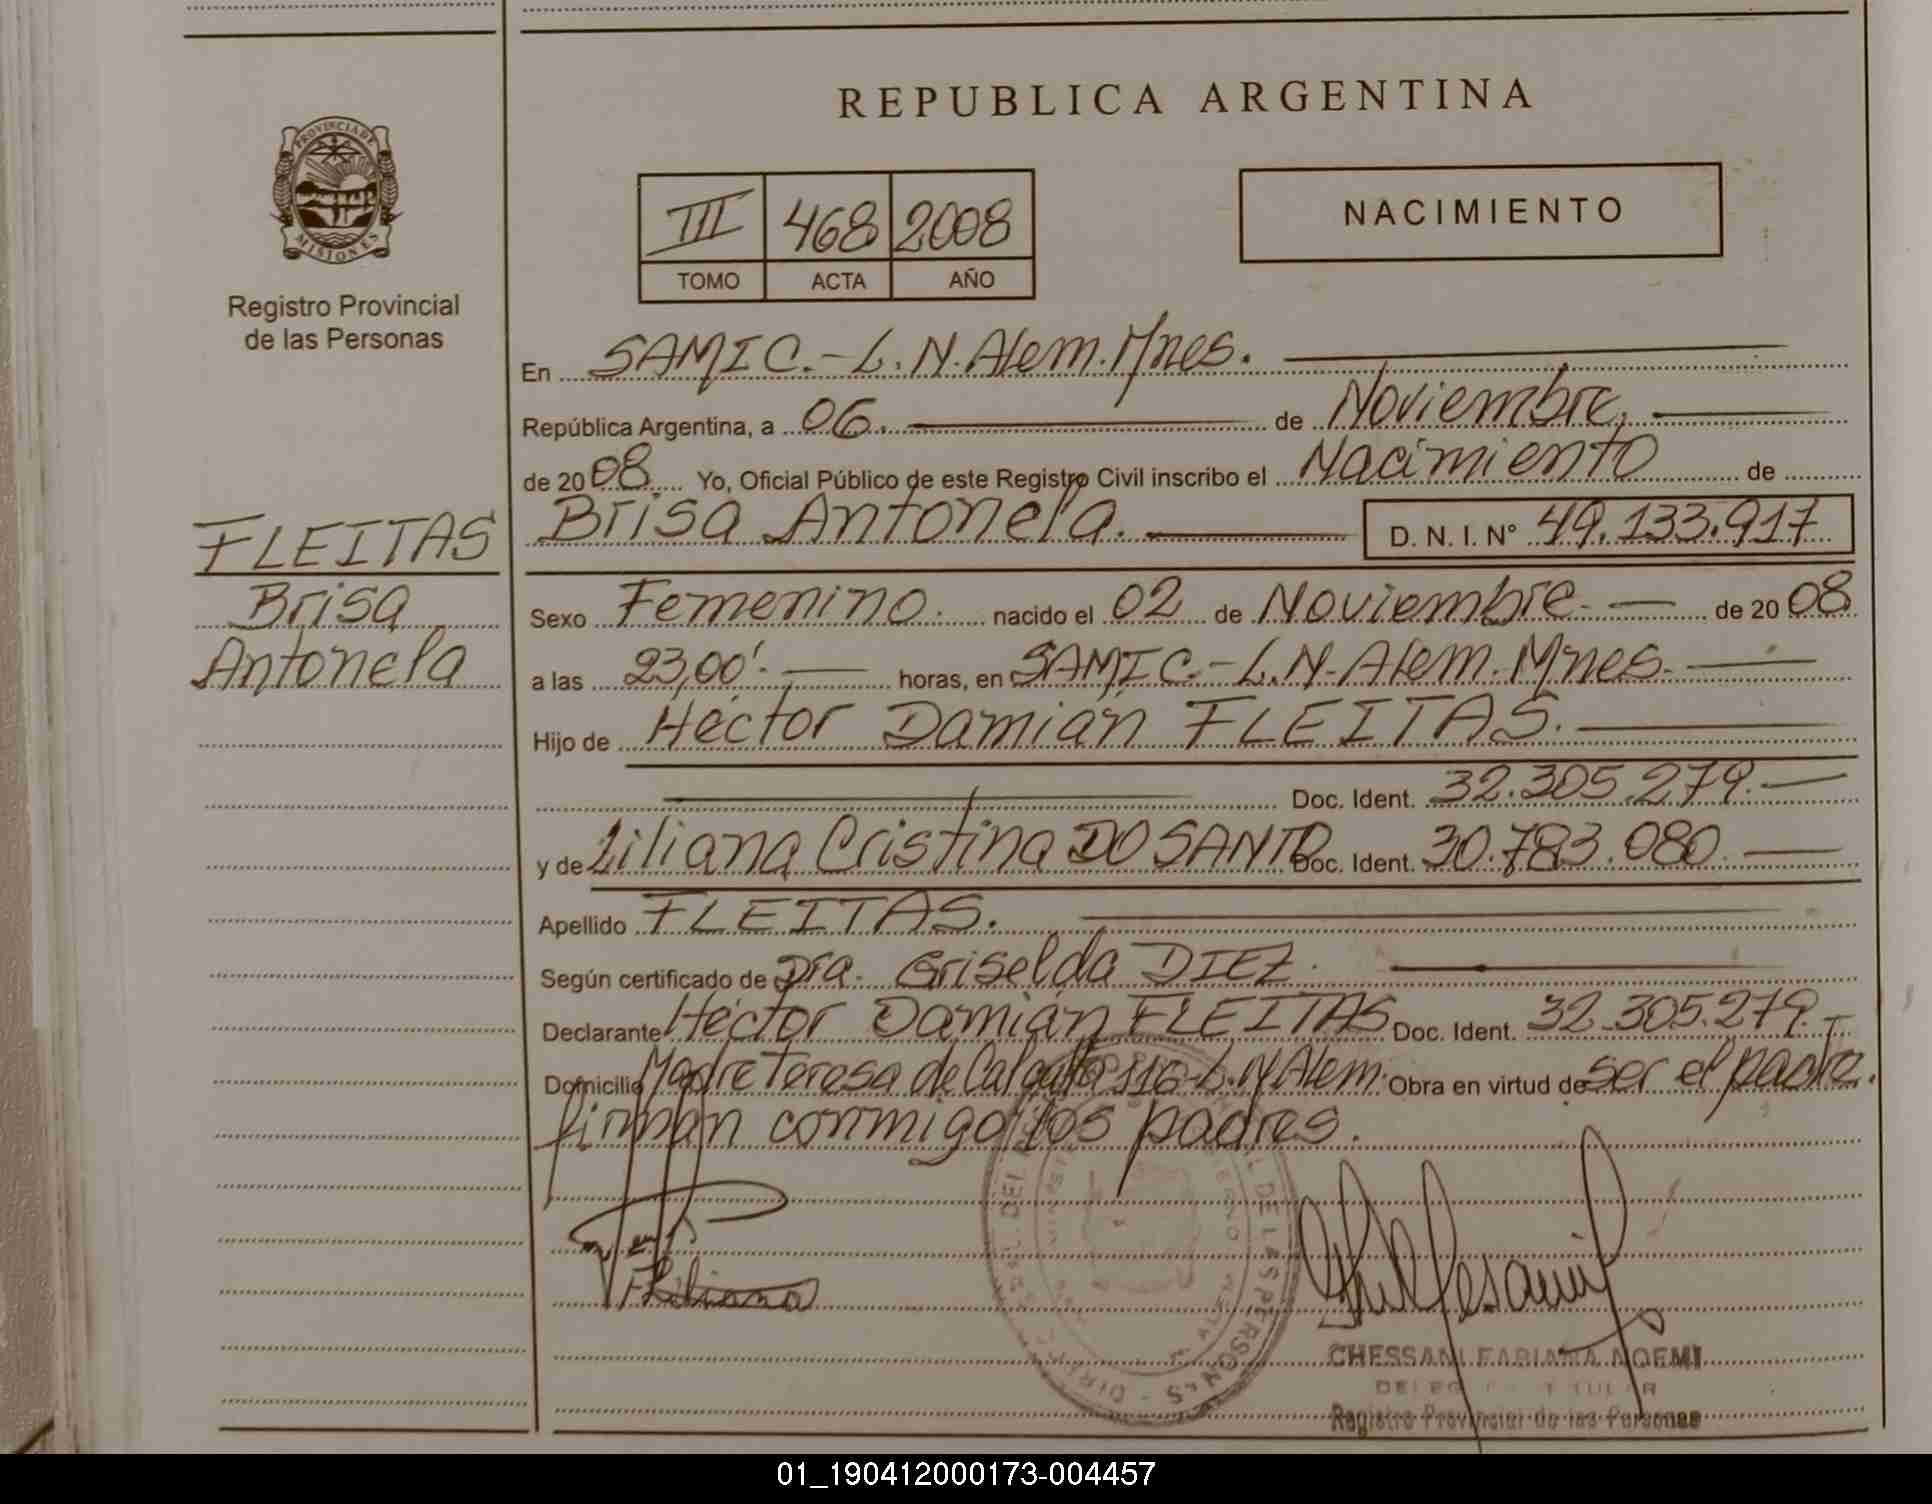 PROVINCIA DE
MISIONES
Registro Provincial
de las Personas
FLEITAS
Brisa
Antonela
REPUBLICA ARGENTINA
III 468 2008
TOMO ACTA AÑO
NACIMIENTO
En SAMIC.-L.N.Alem.Mnes.
República Argentina, a 06. de Noviembre.
de 2008. Yo, Oficial Público de este Registro Civil inscribo el Nacimiento de
Brisa Antonela. D. N. I. N° 49.133.917
Sexo Femenino. nacido el 02 de Noviembre. de 20 08
a las 23,00'. horas, en SAMIC.-L.N.Alem.Mnes.
Hijo de Héctor Damián FLEITAS.
Doc. Ident. 32.305.279.
y de Liliana Cristina DO SANTO Doc. Ident. 30.783.080.
Apellido FLEITAS.
Según certificado de Dra. Griselda DIEZ.
Declarante Héctor Damián FLEITAS Doc. Ident. 32.305.279.
Domicilio Madre Teresa de Calcuta 116-L.N.Alem. Obra en virtud de ser el padre.
firman conmigo los padres.
Liliana
CHESSANI FABIANA NOEMI
Registro Provincial de las Personas
01_190412000173-004457